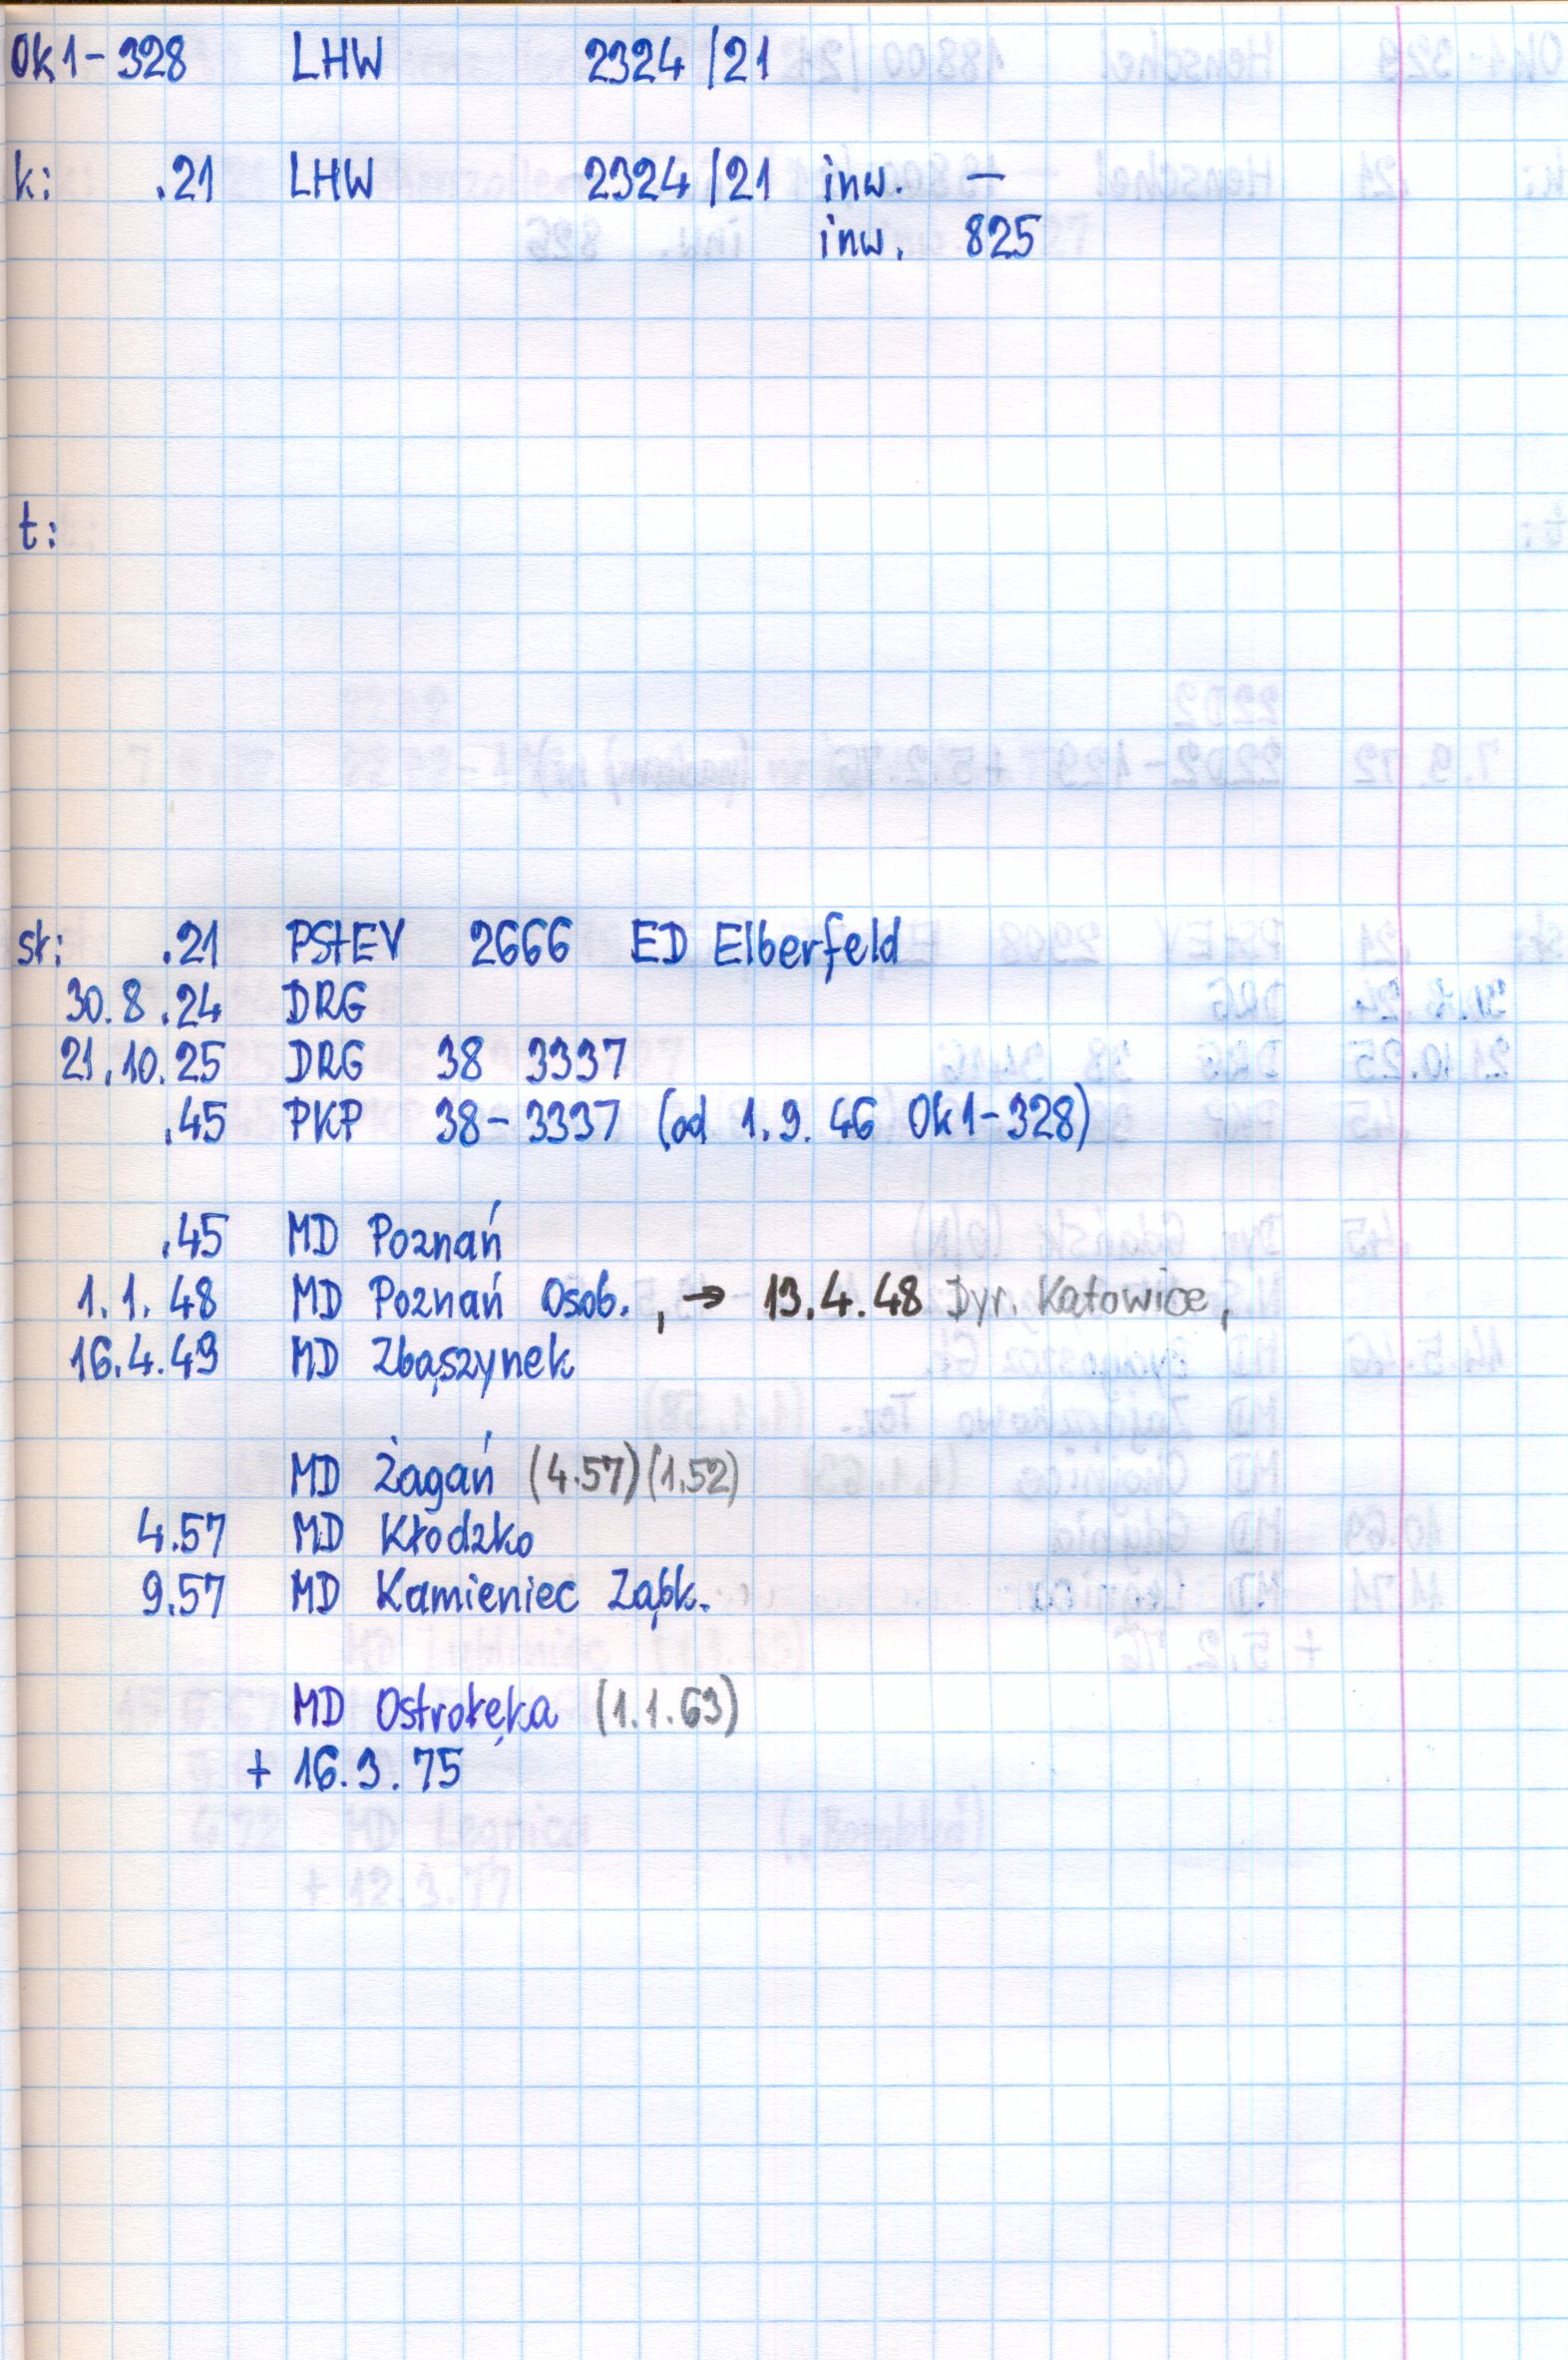 Ok1-328 LHW 2324/21
k: .21 LHW 2324/21 inw. —
inw. 825
t:
st: .21 PStEV 2666 ED Elberfeld
30.8.24 DRG
21.10.25 DRG 38 3337
.45 PKP 38-3337 (od 1.9.46 Ok1-328)
.45 MD Poznań
1.1.48 MD Poznań Osob., → 13.4.48 Dyr. Katowice,
16.4.49 MD Zbąszynek
MD Żagań (4.57) (1.52)
4.57 MD Kłodzko
9.57 MD Kamieniec Ząbk.
MD Ostrołęka (1.1.63)
+ 16.3.75